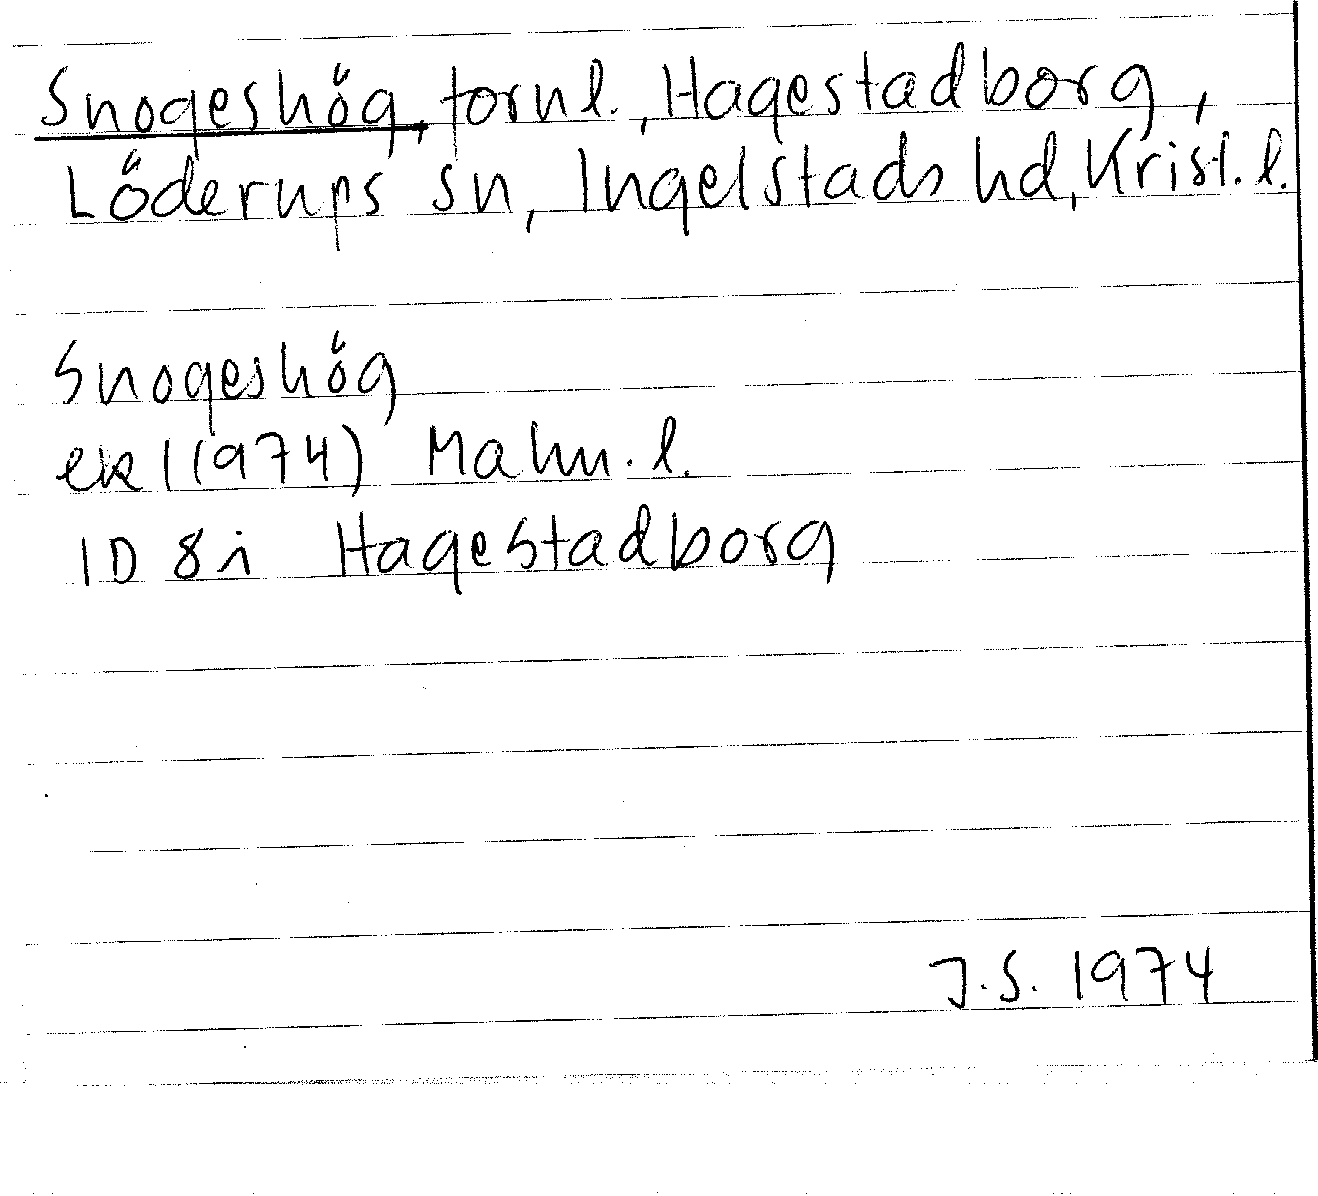 Snogeshög, fornl., Hagestadborg,
Löderups sn, Ingelstads hd, Krist. l.
Snogeshög
ek (1974) Malm. l.
1D 8i Hagestadborg
J.S. 1974